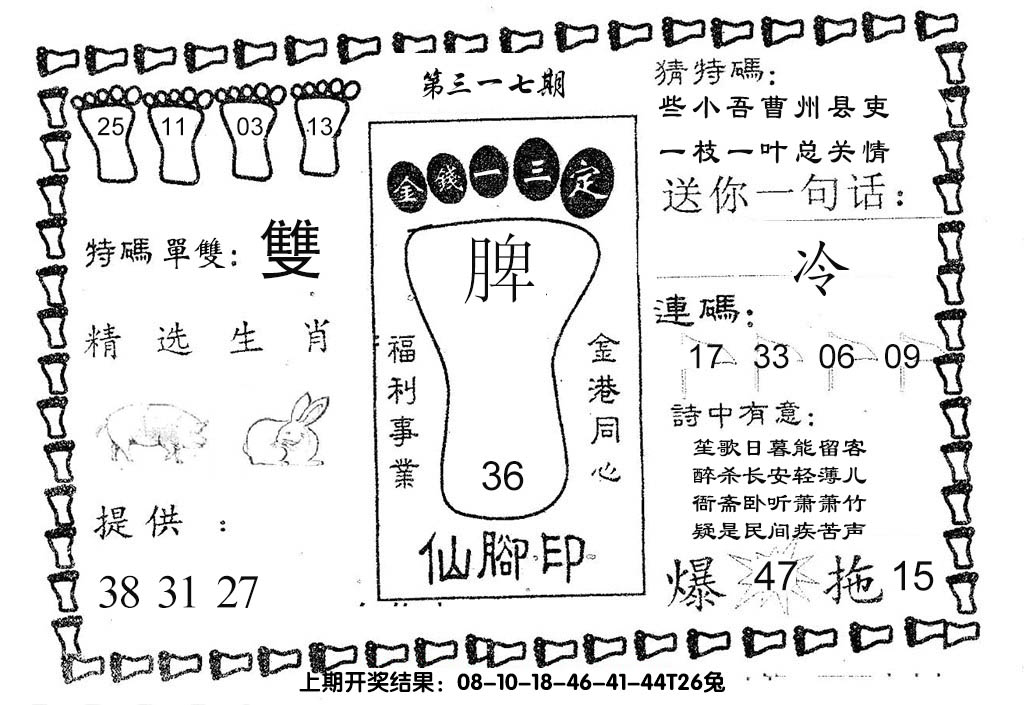 第三一七期
25 11 03 13
特碼單雙：雙
精选生肖
提供：
38 31 27
金錢一三定
脾
福利事業
金港同心
36
仙腳印
猜特碼：
些小吾曹州县吏
一枝一叶总关情
送你一句话：
冷
連碼：
17 33 06 09
詩中有意：
笙歌日暮能留客
醉杀长安轻薄儿
衙斋卧听萧萧竹
疑是民间疾苦声
爆 47 拖 15
上期开奖结果：08-10-18-46-41-44T26兔